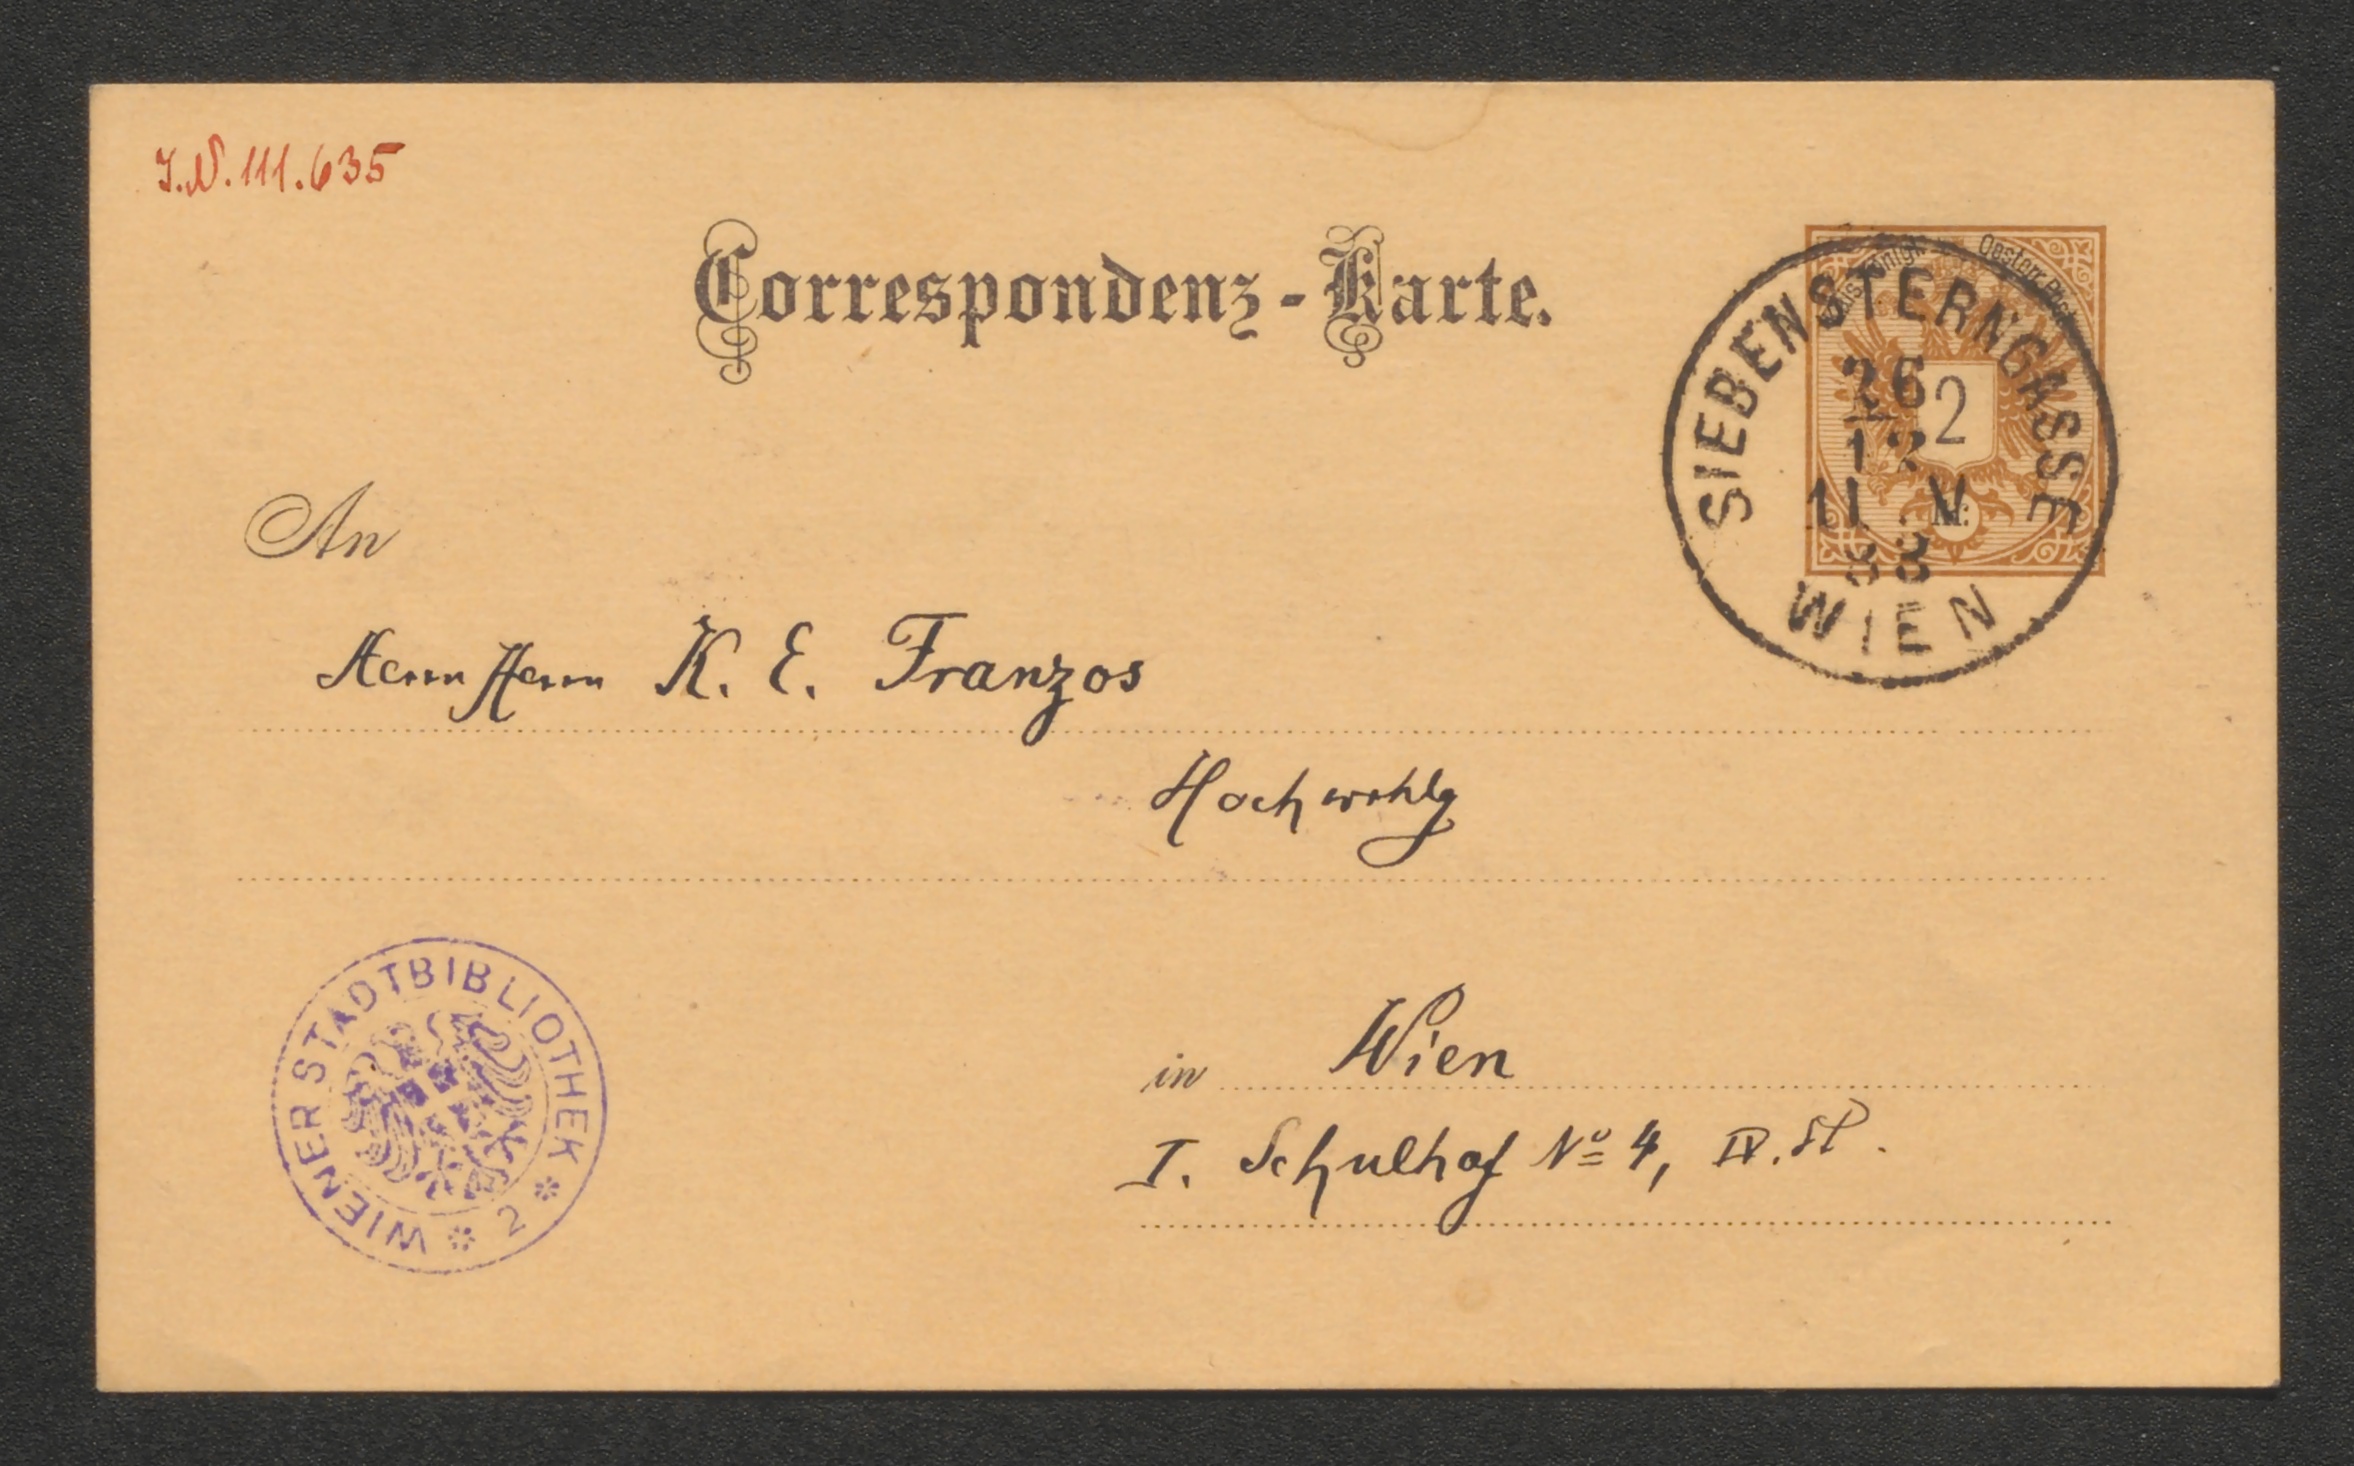 I.N. 111.635
Correspondenz-Karte.
Oesterr. Post
2
SIEBENSTERNGASSE
26
12
11 V
WIEN
An
Herrn Herrn K. E. Franzos
Hochwohlg
in Wien
I. Schulhof No 4, IV. St.
WIENER STADTBIBLIOTHEK * 2 *